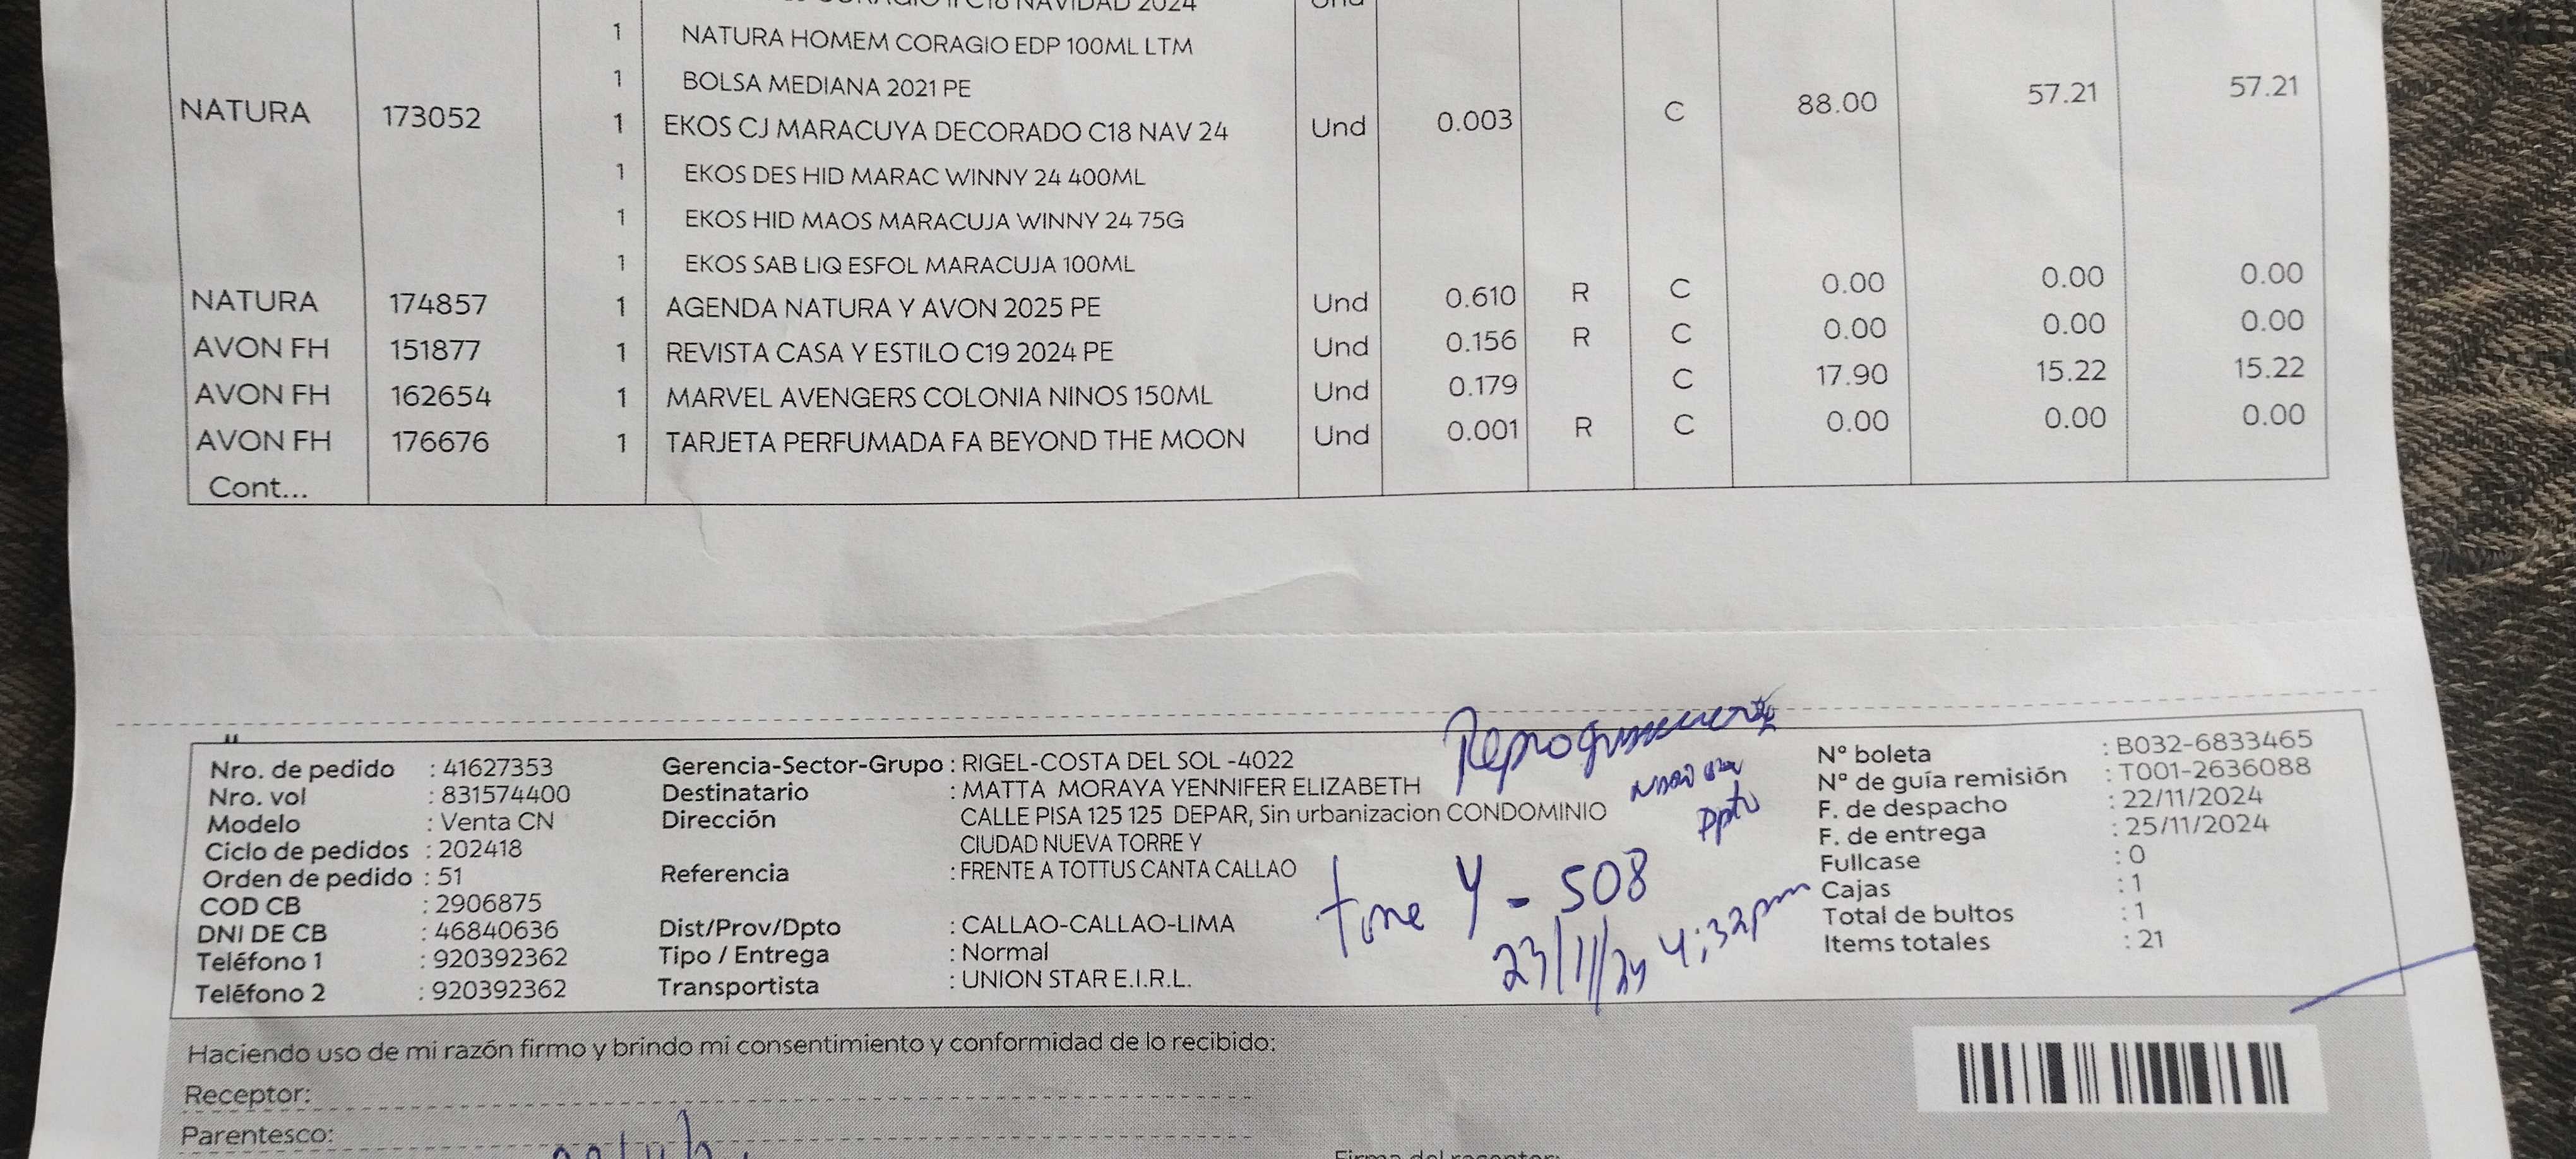 NATURA HOMEM CORAGIO EDP 100ML LTM
1
BOLSA MEDIANA 2021 PE
1
NATURA 173052 1 EKOS CJ MARACUYA DECORADO C18 NAV 24 Und 0.003 C 88.00 57.21 57.21
1 EKOS DES HID MARAC WINNY 24 400ML
1 EKOS HID MAOS MARACUJA WINNY 24 75G
1 EKOS SAB LIQ ESFOL MARACUJA 100ML
NATURA 174857 1 AGENDA NATURA Y AVON 2025 PE Und 0.610 R C 0.00 0.00 0.00
AVON FH 151877 1 REVISTA CASA Y ESTILO C19 2024 PE Und 0.156 R C 0.00 0.00 0.00
AVON FH 162654 1 MARVEL AVENGERS COLONIA NINOS 150ML Und 0.179 C 17.90 15.22 15.22
AVON FH 176676 1 TARJETA PERFUMADA FA BEYOND THE MOON Und 0.001 R C 0.00 0.00 0.00
Cont...
Nro. de pedido : 41627353
Nro. vol : 831574400
Modelo : Venta CN
Ciclo de pedidos : 202418
Orden de pedido : 51
COD CB : 2906875
DNI DE CB : 46840636
Teléfono 1 : 920392362
Teléfono 2 : 920392362
Gerencia-Sector-Grupo : RIGEL-COSTA DEL SOL -4022
Destinatario : MATTA MORAYA YENNIFER ELIZABETH
Dirección : CALLE PISA 125 125 DEPAR, Sin urbanizacion CONDOMINIO
CIUDAD NUEVA TORRE Y
Referencia : FRENTE A TOTTUS CANTA CALLAO
Dist/Prov/Dpto : CALLAO-CALLAO-LIMA
Tipo / Entrega : Normal
Transportista : UNION STAR E.I.R.L.
Dpto
Y - 508
23/11/24 4:32pm
N° boleta : B032-6833465
N° de guía remisión : T001-2636088
F. de despacho : 22/11/2024
F. de entrega : 25/11/2024
Fullcase : 0
Cajas : 1
Total de bultos : 1
Items totales : 21
Haciendo uso de mi razón firmo y brindo mi consentimiento y conformidad de lo recibido:
Receptor:
Parentesco: